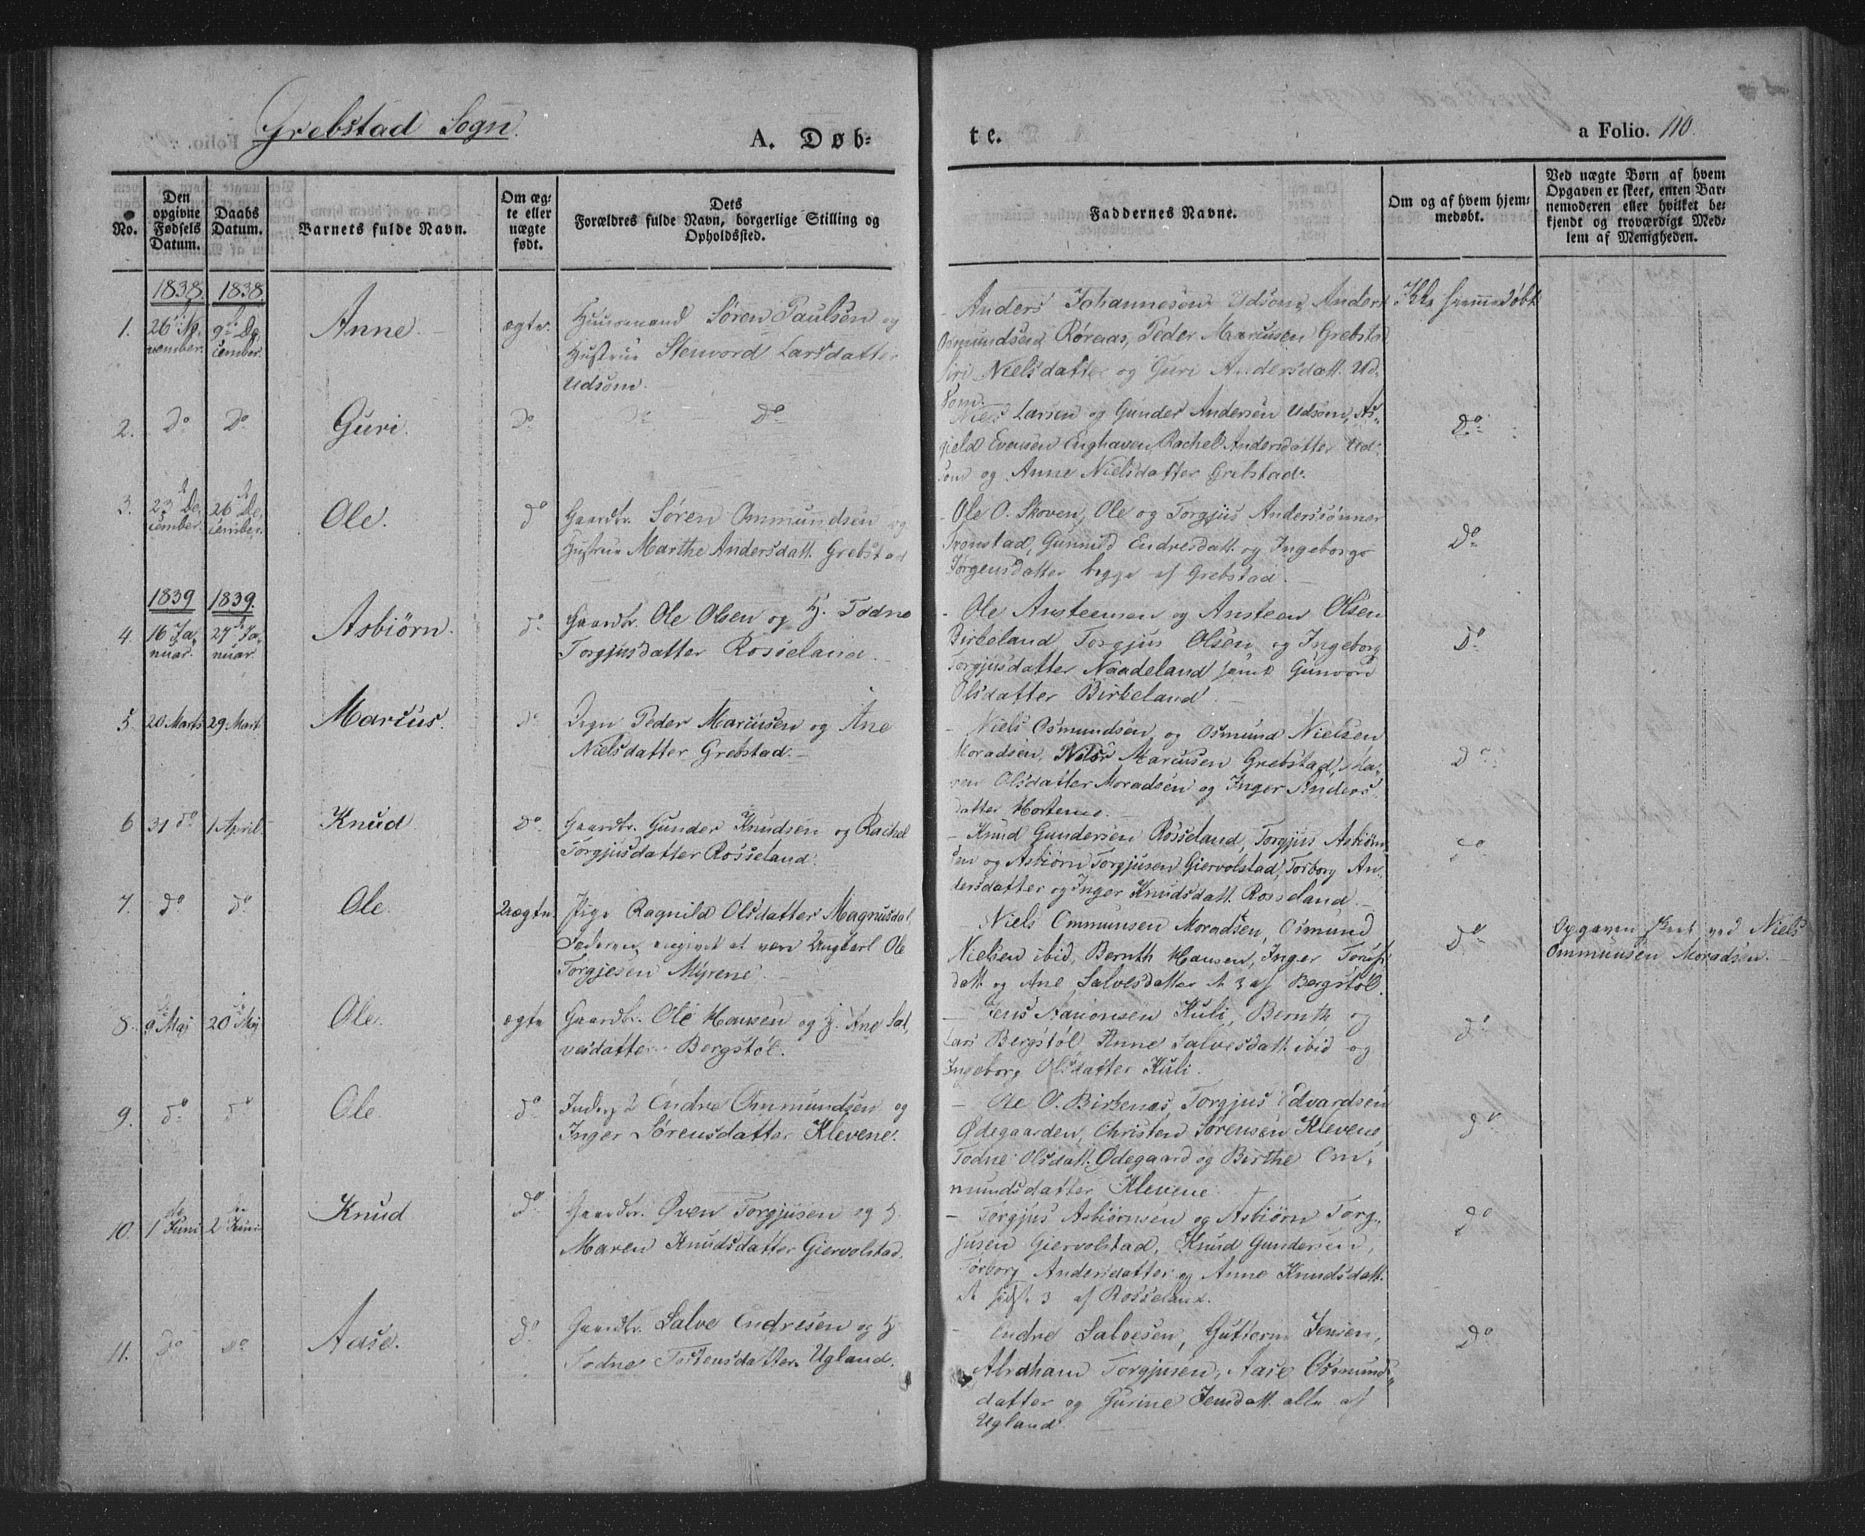 Grebstad Sogn.
A. Døb-
te.
a Folio. 110.
No.
Den opgivne Fødsels Datum.
Daabs Datum.
Barnets fulde Navn.
Om ægte eller uægte født.
Dets Forældres fulde Navn, borgerlige Stilling og Opholdssted.
Faddernes Navne.
Om og af hvem hjemmedøbt.
Ved uægte Børn af hvem Opgaven er skeet, enten Barnemoderen eller hvilket bekjendt og troværdigt Medlem af Menigheden.
1838. 1838.
1. 26 November. 9 December. Anne ægte Huusmand Søren Paulsen og
Hustrue Stenvord Larsdatter
Udsom.
Anders Johannesen Udsom, Anders
Osmundsen Røraas, Peder Marcusen Grebstad
Siri Nielsdatter og Guri Andersdatt. Ud-
som.
Ikke hjemmedøbt
2. Do Do Guri. Do Do Do
Niels Larsen og Gunder Andersen Udsom, As-
gield Evensen Enghaven, Rachel Andersdatter Ud-
som og Anne Nielsdatter Grebstad.
Do
3. 23 December. 26 December. Ole. do Gaardbr. Søren Ommundsen og
Hustrue Marthe Andersdatt. Grebstad
- Ole O. Skoven, Ole og Torgjus Anderssønner
Tronstad, Gunnild Endresdatt. og Ingeborg
Jørgensdatter begge af Grebstad.
Do
1839 1839.
4. 16 Januar. 27 Januar. Asbiörn. do Gaardbr. Ole Olsen og H. Todne
Torgjusdatter Rosseland.
- Ole Ansteensen og Ansteen Olsen
Birkeland, Torgjus Olsen og Ingeborg
Torgjusdatter Naadeland samt Gunvor
Olsdatter Birkeland
Do
5. 20 Marts 29 Mart. Marcus. do Peder Marcusen og Ane
Nielsdatter Grebstad.
- Niels Osmundsen, og Osmund Nielsen
Moradsen, Marcusen Grebstad, Ma-
ren Olsdatter Moradsen og Inger Anders-
datter Hortemo.
Do
6 31 do 1 April Knud do Gaardbr. Gunder Knudsen og Rachel
Torgjusdatter Rosseland.
- Knud Gundersen Rosseland, Torgjus Asbiörn-
sen og Asbiörn Torgjusen Giervolstad, Torborg An-
dersdatter og Inger Knudsdatt. Rosseland
do
7. do do Ole. Uægte Pige Ragnild Olsdatter Magnusdal
Faderen angivet at være Ungkarl Ole
Torgjesen Myrene
Niels Ommunsen Moradsen, Osmund
Nielsen ibid, Bernth Hansen, Inger
datt og Ane Salvesdatter A 3 af Bergstöl.
do
Opgaven skeet ved Niels
Ommunsen Moradsen.
8. 9 Maj 20 Maj Ole. ægte Gaardbr. Ole Hansen og H. Ane Sal-
vesdatter Bergstöl.
- Jens Aanonsen Kuli, Bernth og
Lars Bergstöl Anne Salvesdatt. ibid og
Ingeborg Olsdatter Kuli.
do
9. do do Ole do Inderst Endre Ommundsen og
Inger Sörensdatter Klevene.
- Ole O. Birkenes, Torgjus Edvardsen
Ødegaarden, Christen Sørensen Klevene,
Todne Olsdatt. Ødegaard og Birthe Om-
mundsdatter Klevene
do
10. 1 Juni 2 Juni Knud do Gaardbr. Øven Torgjusen og H.
Maren Knudsdatter Giervolstad.
- Torgjus Asbiörnsen og Asbiörn Torg-
jusen Giervolstad, Knud Gundersen,
Torborg Andersdatter og Anne Knudsdatt.
A sidst. 3 af Rosseland.
do
11. Do do Aase. do Gaardbr. Salve Endresen og H.
Todne Torkensdatter Ugland.
- Endre Salvesen, Guttorm Jensen,
Abraham Torgjusen, Aase Osmunds-
datter og Gurine Jensdatt. alle af
Ugland
Do